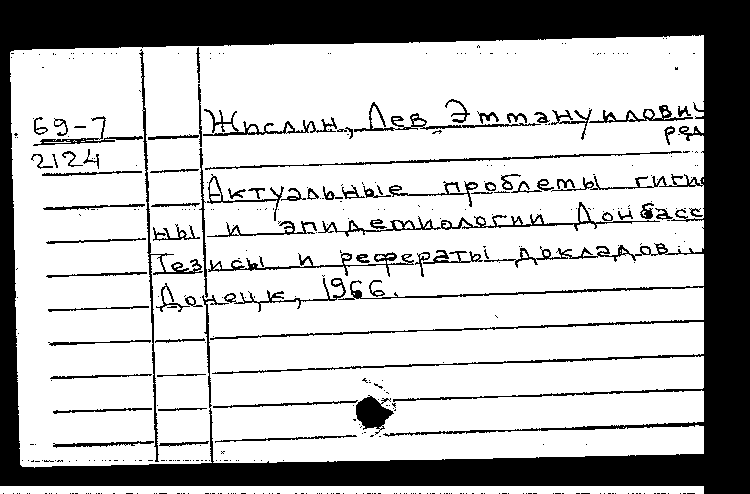 69-7
2124
Жислин, Лев Эммануилович
ред
Актуальные проблемы гигие
ны и эпидемиологии Донбасс
Тезисы и рефераты докладов...
Донецк, 1966.